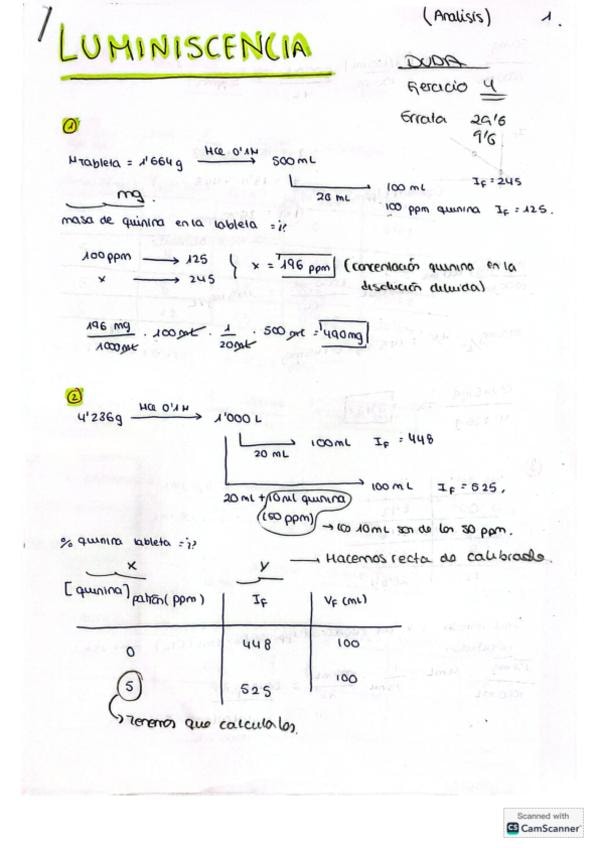 (Analisis) 1.
LUMINISCENCIA
DUDA
Ejercicio 4
Errata 29'6
9'6
1
M tableta = 1'664g HCl 0'1M 500mL
20 mL 100 mL IF = 245
100 ppm quinina IF = 125.
mg.
masa de quinina en la tableta = ¿?
100ppm → 125
x → 245 } x = 196 ppm (concentración quinina en la
disolución diluida)
196 mg / 1000mL · 100mL · 1 / 20mL · 500 mL = 490mg
2
4'236g HCl 0'1M 1'000 L
20 mL 100mL IF = 448
20 mL + 10 mL quinina 100 mL IF = 525.
(50 ppm) → los 10mL son de los 50 ppm.
% quinina tableta = ¿?
x y → Hacemos recta de calibrado.
[quinina] patrón (ppm) IF VF (mL)
0 448 100
5 525 100
→ Tenemos que calcularlos.
Scanned with
CS CamScanner